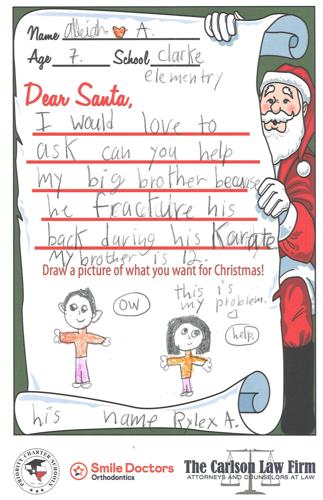 Name Aleigh A.
Age 7. School Clarke
elementry
Dear Santa,
I would love to
ask can you help
my big brother because
he fracture his
back during his Karate
my brother is 12.
Draw a picture of what you want for Christmas!
OW
this is
my problem.
help.
his name Rylex A.
PRIORITY CHARTER SCHOOLS
Smile Doctors
Orthodontics
The Carlson Law Firm
ATTORNEYS AND COUNSELORS AT LAW